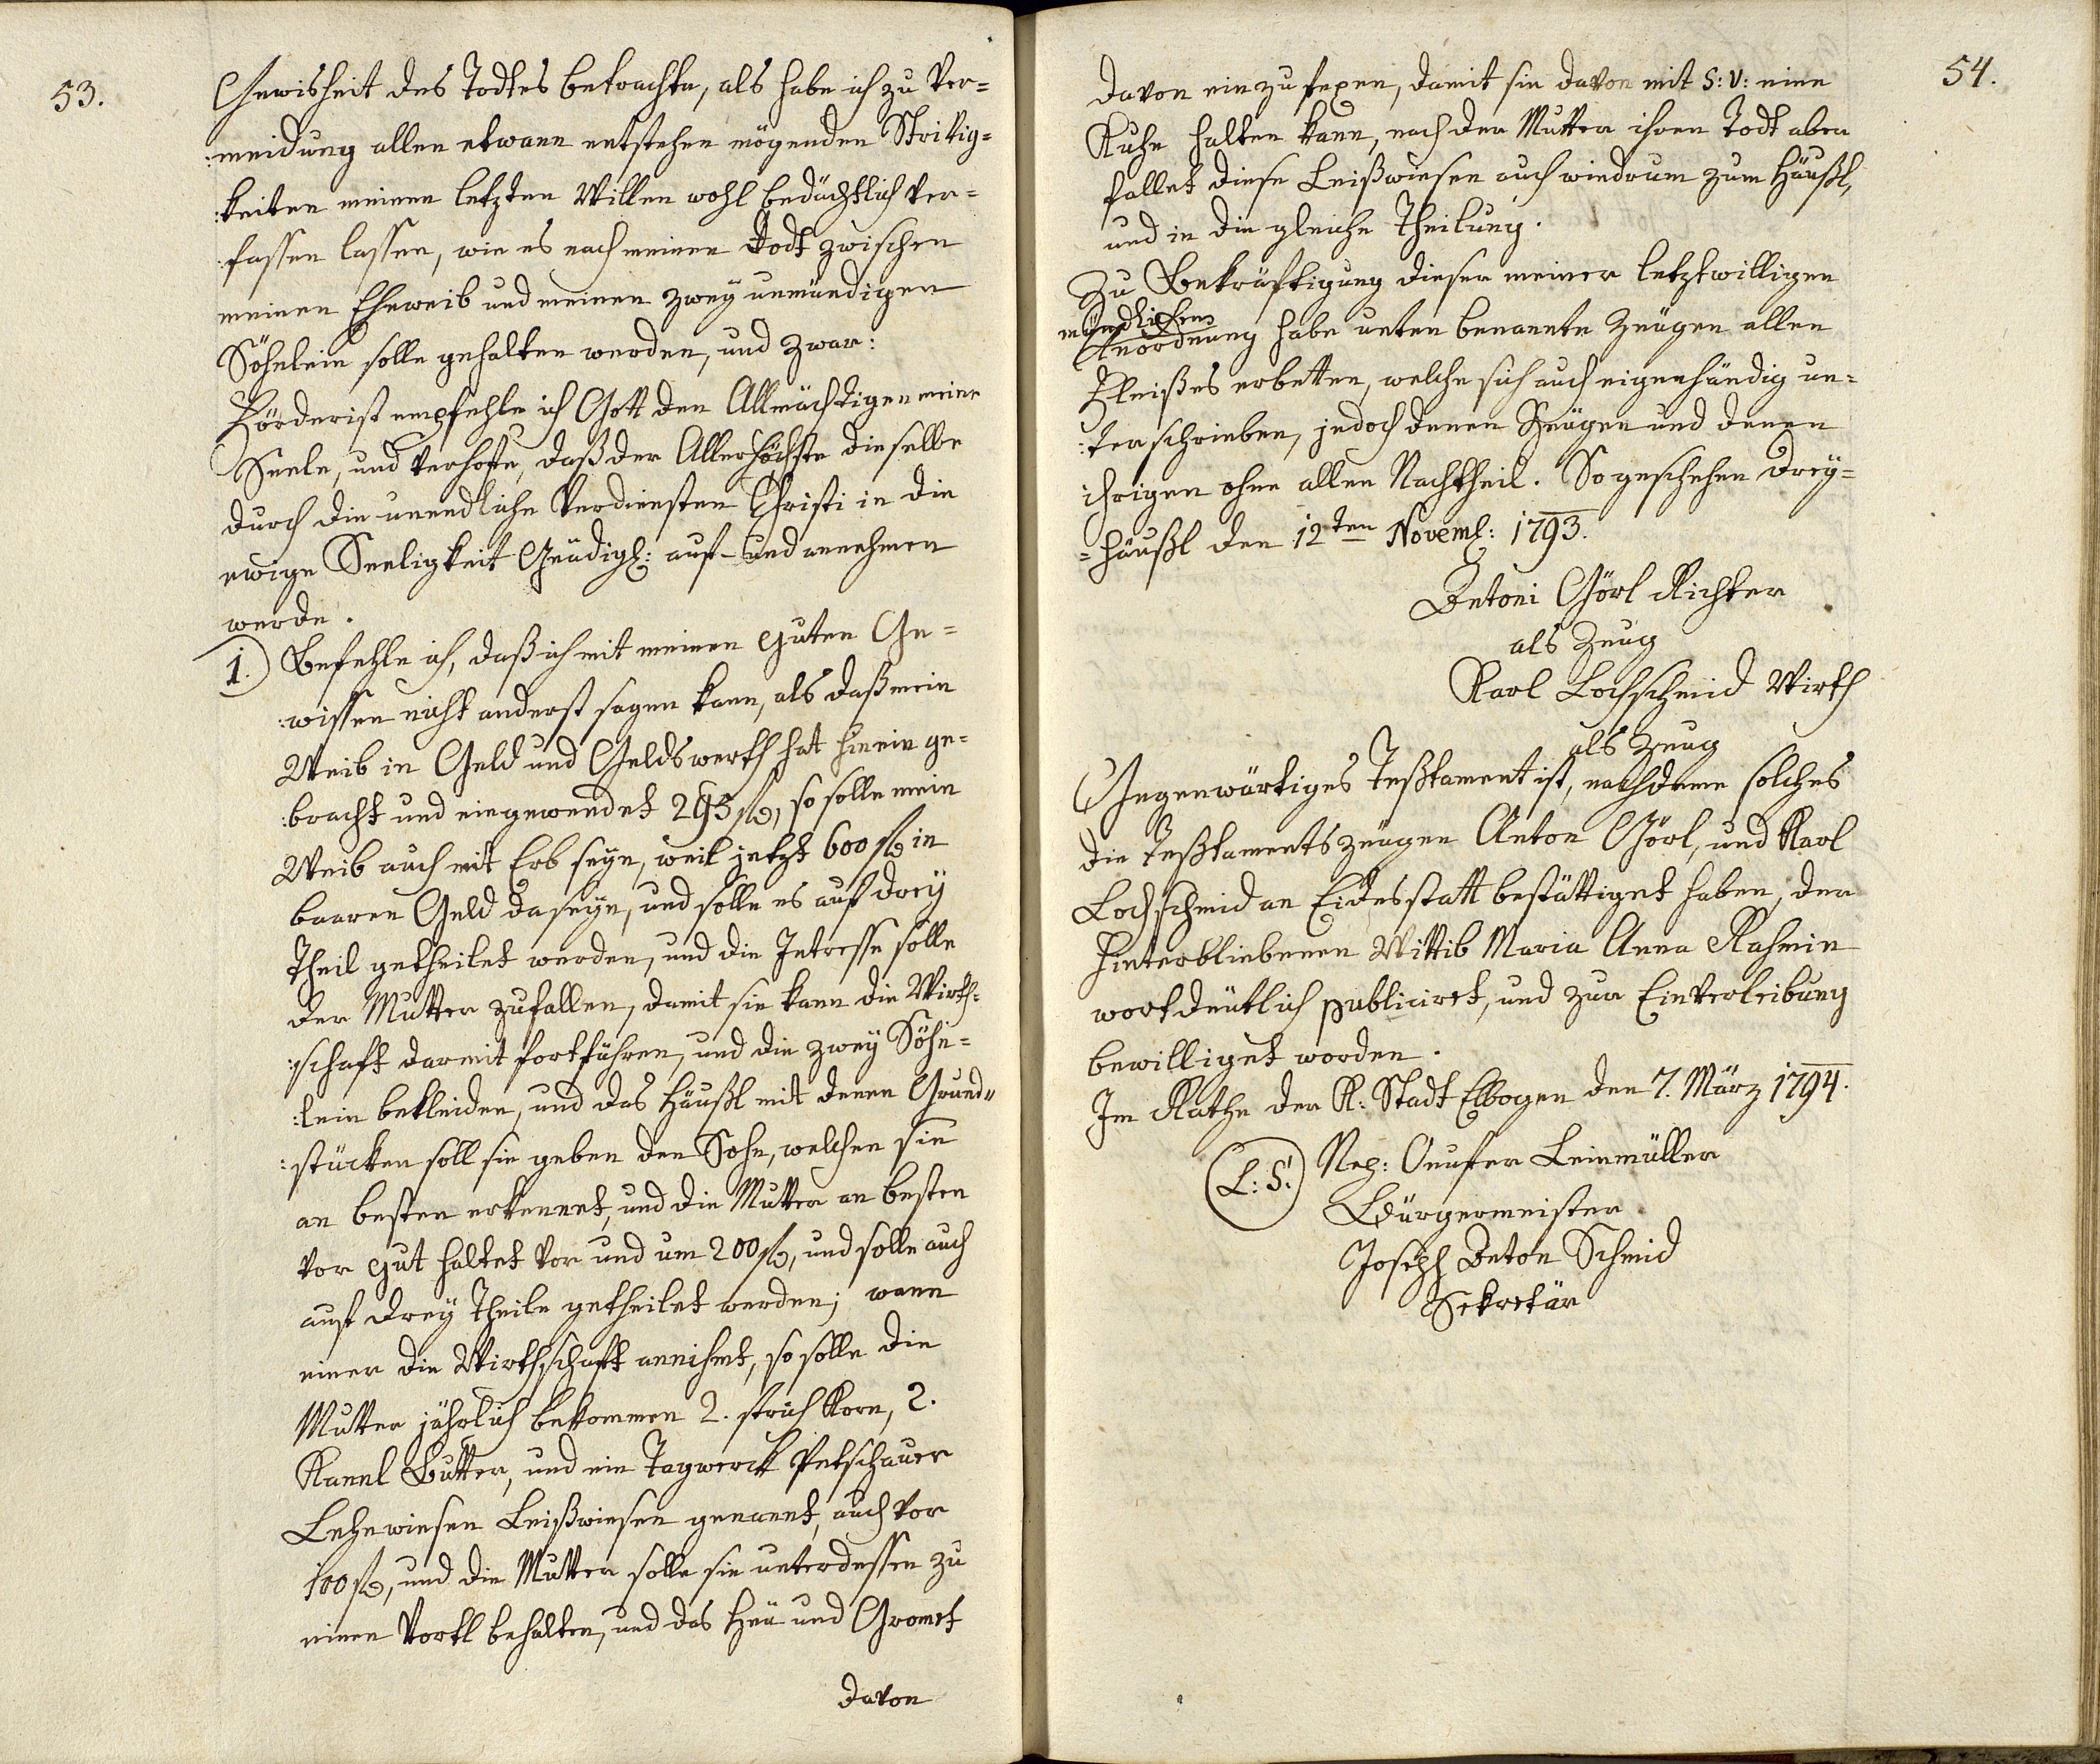 53.
Gewisheit des Todtes betrachte, als habe ich zu Ver=
:meidung allen etwann entstehen mögenden Stritig=
:keiten meinen letzten Willen wohl bedächtlich ver=
:fassen lassen, wie es nach meinen Todt zwischen
meinen Eheweib und meinen zwey unmündigen
Söhnlein solle gehalten werden, und zwar:
Förderist empfehle ich Gott den Allmächtigen meine
Seele, und verhoffe, daß der Allerhöchste dieselbe
durch die unendliche Verdiensten Christi in die
ewige Seeligkeit Gnädigl: auf- und annehmen
werde.
1.) Befehle ich, daß ich mit meinen guten Ge=
:wissen nicht anderst sagen kann, als daß mein
Weib in Geld und Geldswerth hat hinein ge=
:bracht und eingewendet 293 fl, so solle mein
Weib auch mit Erb seyn, weil jetzt 600 fl in
baaren Geld da seyn, und solle es auf drey
Theil getheilet werden, und die Intresse solle
der Mutter zufallen, damit sie kann die Wirth=
:schaft darmit fortführen, und die zwey Söhn=
:lein bekleiden, und das Häußl mit denen Grund=
:stücken soll sie geben den Sohn, welchen sie
an besten erkennet, und die Mutter an besten
vor gut haltet vor und um 200 fl, und solle auch
auf drey Theile getheilet werden; wann
einer die Wirthschaft annihmt, so solle die
Mutter jährlich bekommen 2. strich Korn, 2.
Kannl Butter, und ein Tagwerck Petschauer
Lehnwiesen Leißwiesen genannt, auch vor
100 fl, und die Mutter solle sie unterdessen zu
einen Vortl behalten, und das Heu und Gromet
davon
54.
davon einzufexen, damit sie davon mit S: V: eine
Kuhe halten kann, nach der Mutter ihren Todt aber
fallet diese Leißwiesen auch wiedrum zum Häußl,
und in die gleiche Theilung.
Zu Bekräftigung dieser meiner letztwilligen
mündlichen
Anordnung habe unten benannte Zeugen allen
Fleißes erbetten, welche sich auch eigenhändig un=
:terschrieben, jedoch denen Zeugen und denen
ihrigen ohne allen Nachtheil. So geschehen Drey=
=häußl den 12ten Noveml: 1793.
Antoni Görl Richter
als Zeug
Karl Lochschmid Wirth
als Zeug
Gegenwärtiges Testament ist, nachdeme solches
die Testamentszeugen Anton Görl, und Karl
Lochschmid an Eidesstatt bestättiget haben, der
hinterbliebenen Wittib Maria Anna Rahmin
wortdeutlich publiciret, und zur Einverleibung
bewilliget worden.
Im Rathe der K: Stadt Elbogen den 7. März 1794.
(L: S.) Nep: Onufer Leinmüller
Bürgermeister
Joseph Anton Schmid
Sekretär